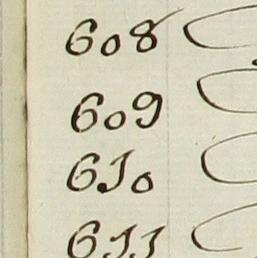 608
609
610
611